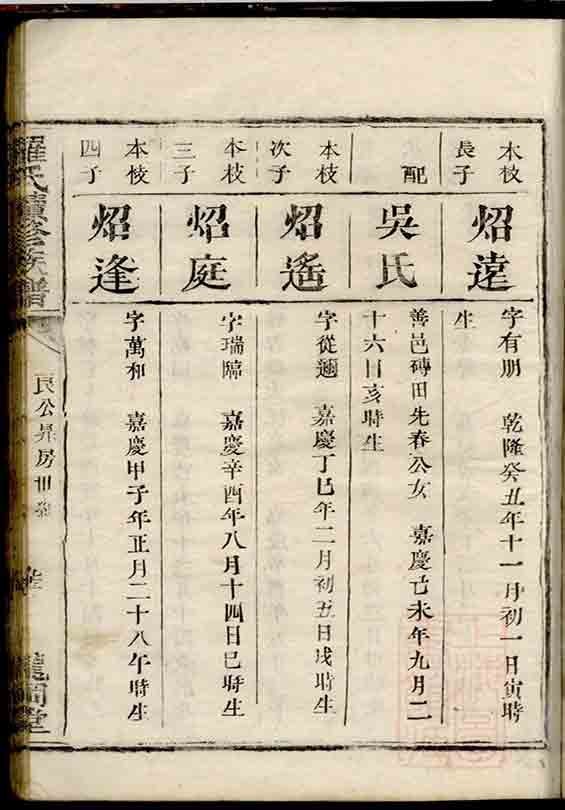 本枝
長子
炤遠
字有朋　乾隆癸丑年十一月初一日寅時
生
配
吳氏
善邑磚田先春公女　嘉慶己未年九月二
十六日亥時生
本枝
次子
炤遙
字從邇　嘉慶丁巳年二月初五日戌時生
本枝
三子
炤庭
字瑞　嘉慶辛酉年八月十四日巳時生
本枝
四子
炤逢
字萬和　嘉慶甲子年正月二十八午時生
羅氏續修族譜
良公昇房世系